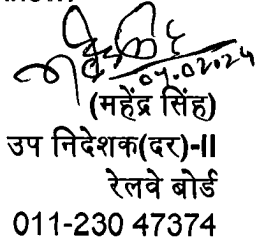 04.02.2024
(महेंद्र सिंह)
उप निदेशक(दर)-II
रेलवे बोर्ड
011-230 47374